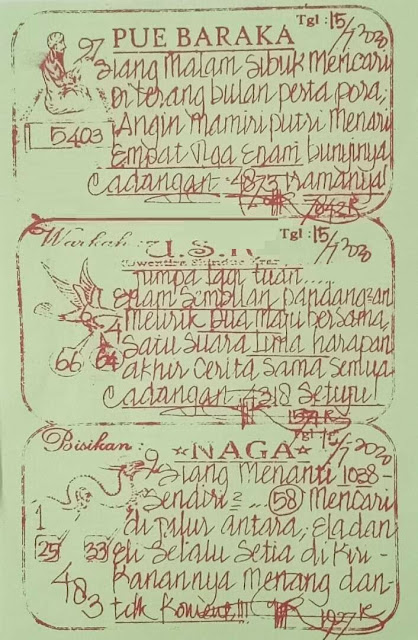 Tgl : 15/7 2020
97 PUE BARAKA
Siang Malam Sibuk Mencari
Di terang bulan pesta pora,
Angin Mamiri putri Menari
5403
Empat Tiga Enam bunyinya
Cadangan = 4875 Iramanya
7842 R
Warkah :
Tgl : 15/7 2020
U.S.
Jumpa lagi tuan.....
Enam Sembilan pandangan
Melirik Dua Mata bersama,
66 64
Satu Suara lima harapan
akhir Cerita Sama Semua
Cadangan = 7318 Setuju!
Tgl : 15/7 2020
Bisikan :
NAGA
9 Siang Menanti 1028 -
Sendiri = ... 58 Mencari
di jalur antara, ela dan
1
25 33
eli Selalu Setia di Kiri -
Kanannya Menang dan -
483
tdk Konieng !!!
1927 R